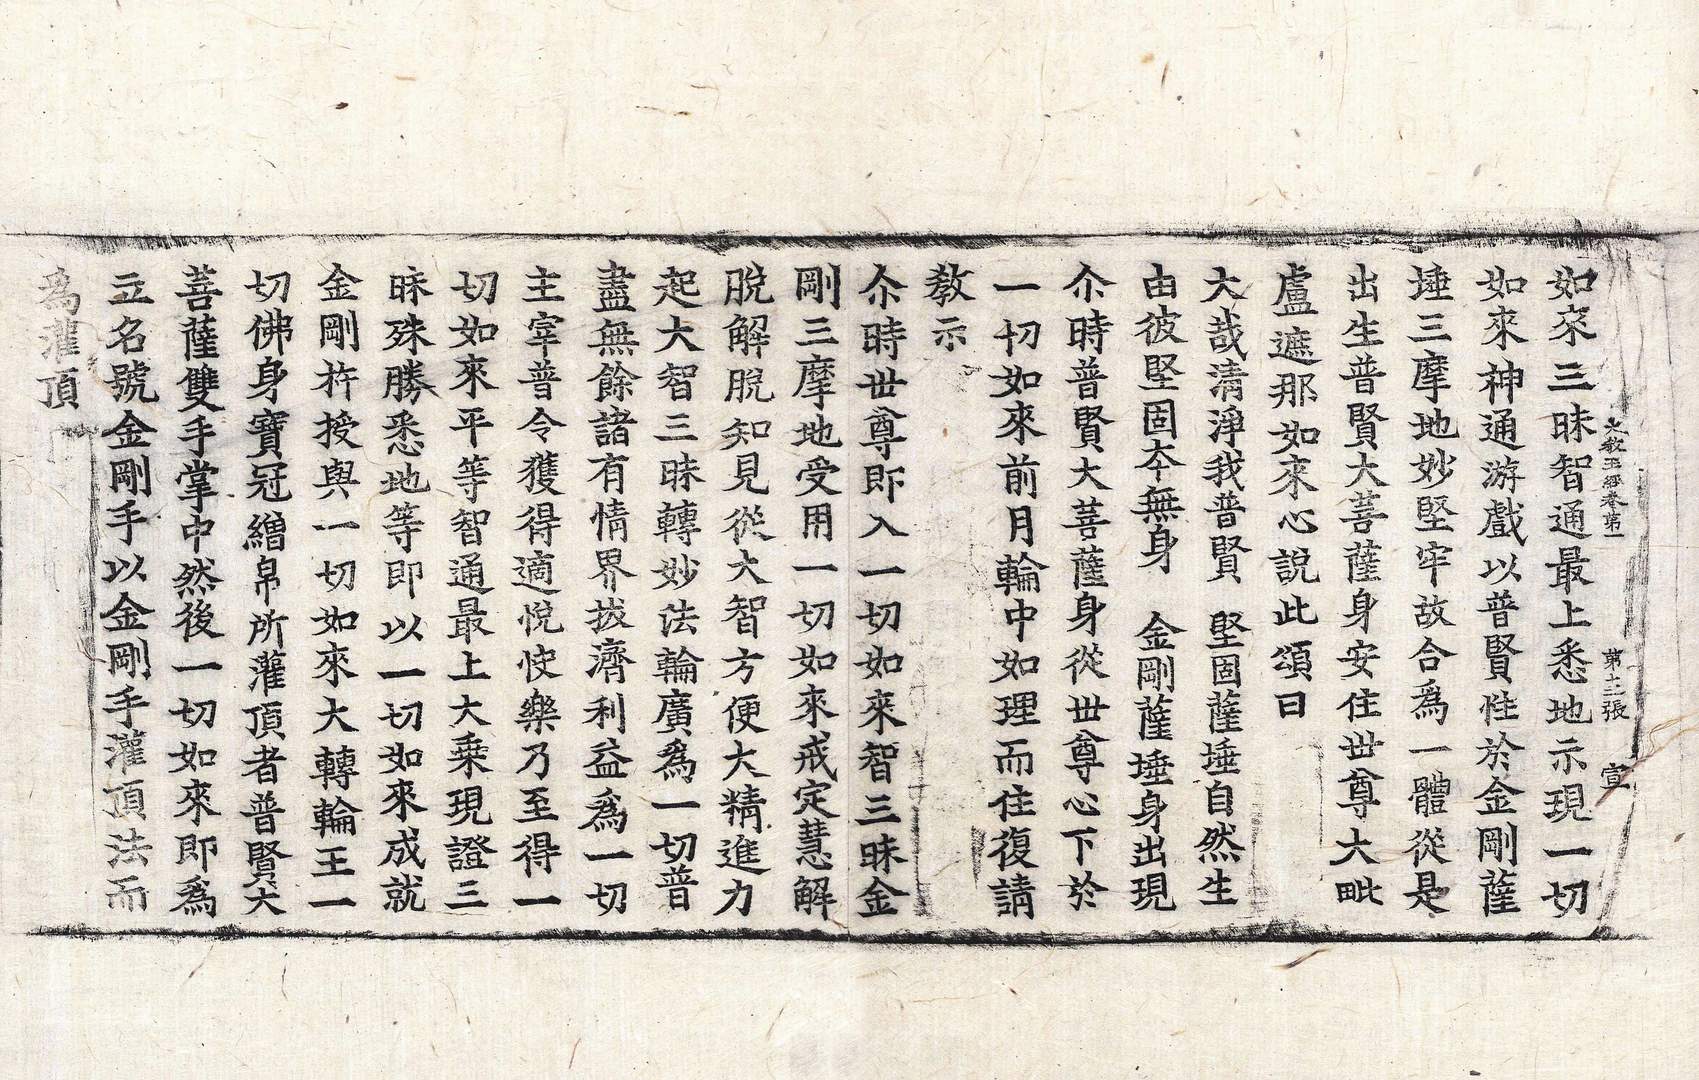 大教王經卷第一　第十三張　宣
如來三昧智通最上悉地示現一切
如來神通游戲以普賢性於金剛薩
埵三摩地妙堅牢故合為一體從是
出生普賢大菩薩身安住世尊大毗
盧遮那如來心說此頌曰
大哉清淨我普賢　堅固薩埵自然生
由彼堅固本無身　金剛薩埵身出現
尒時普賢大菩薩身從世尊心下於
一切如來前月輪中如理而住復請
教示
尒時世尊即入一切如來智三昧金
剛三摩地受用一切如來戒定慧解
脫解脫知見從大智方便大精進力
起大智三昧轉妙法輪廣為一切普
盡無餘諸有情界拔濟利益為一切
主宰普令獲得適悅快樂乃至得一
切如來平等智通最上大乘現證三
昧殊勝悉地等即以一切如來成就
金剛杵授與一切如來大轉輪王一
切佛身寶冠繒帛所灌頂者普賢大
菩薩雙手掌中然後一切如來即為
立名號金剛手以金剛手灌頂法而
為灌頂